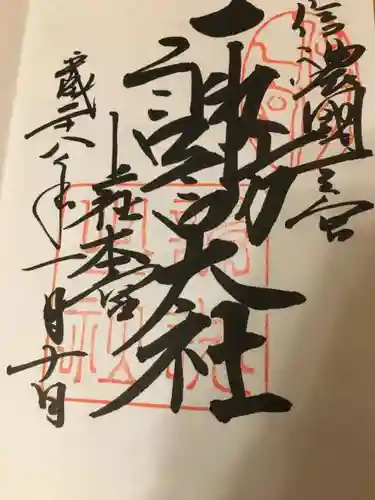 信濃國一之宮
諏訪大社
上社本宮
平成二十八年一月